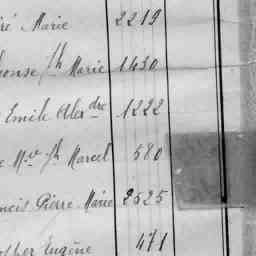 ré Marie 2219
honse Jh Marie 1430
Emile Alexdre 1222
e Mie Jh Marcel 580
ncis Pierre Marie 2525
Eugène 471